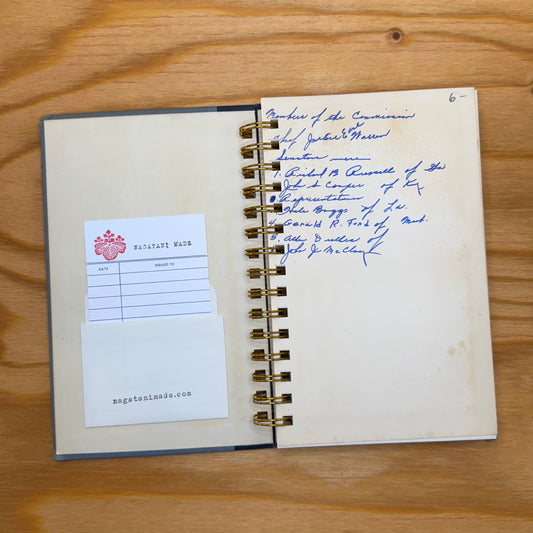 NAGATANI MADE
DATE ISSUED TO
nagatanimade.com
6-
Members of the Commission
Chief Justice Earl Warren
Senators were
1. Richard B Russell of Ga
John S Cooper of Ky
Representatives
Hale Boggs of La.
4. Gerald R. Ford of Mich.
5. Allen Dulles of
John J. McCloy